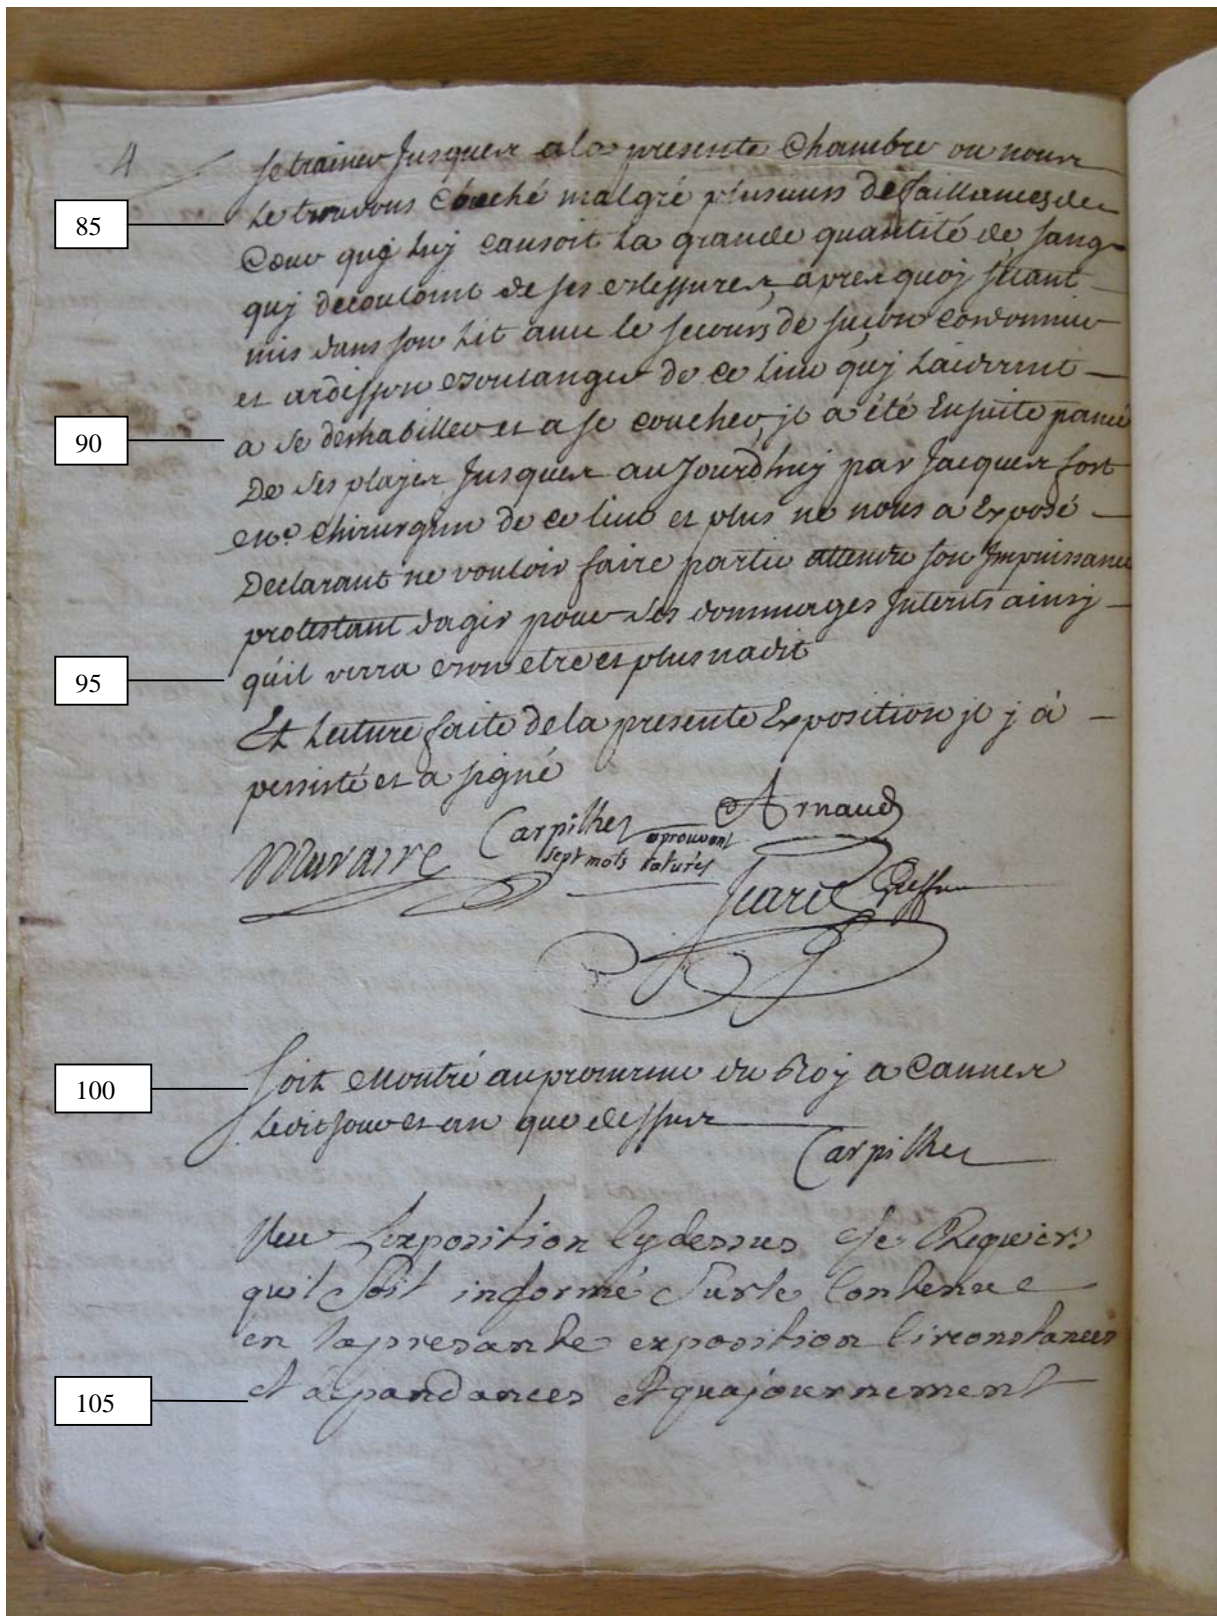 4
se trainer jusques a la presente Chambre ou nous
85
Le trouvons Couché malgré plusieurs defaillances de
Cœur quy luy causoit La grande quantité de sang
quy decouloint de ses blessures, apres quoy setant
mis dans son Lit avec le secours de cordonnier
et ardisson Boulanger de ce Lieu quy Laiderent
90
a se deshabiller et a se coucher, jl a été Ensuite pancé
De ses playes jusques aujourdhuy par jacques fort
Me. chirurgien de ce lieu et plus ne nous a Exposé
Declarant ne vouloir faire partie attendu son Impuissance
protestant dagir pour ses dommages Interets ainsy
95
qu'il verra bon etre et plus na dit
Et Lecture faite de la presente Exposition jl j à
persisté et a signé
Muraire Carpilhet aprouvant Arnaud
sept mots raturés
jeard Greffier
100
soit Montré au procureur du Roy a Cannes
Ledit jour et an que dessus
Carpilhet
Veu Lexposition Cy dessus Je Requiers
quil Soit informé Sur le Contenue
en la presante exposition Circonstances
105
et depandances et quajournement